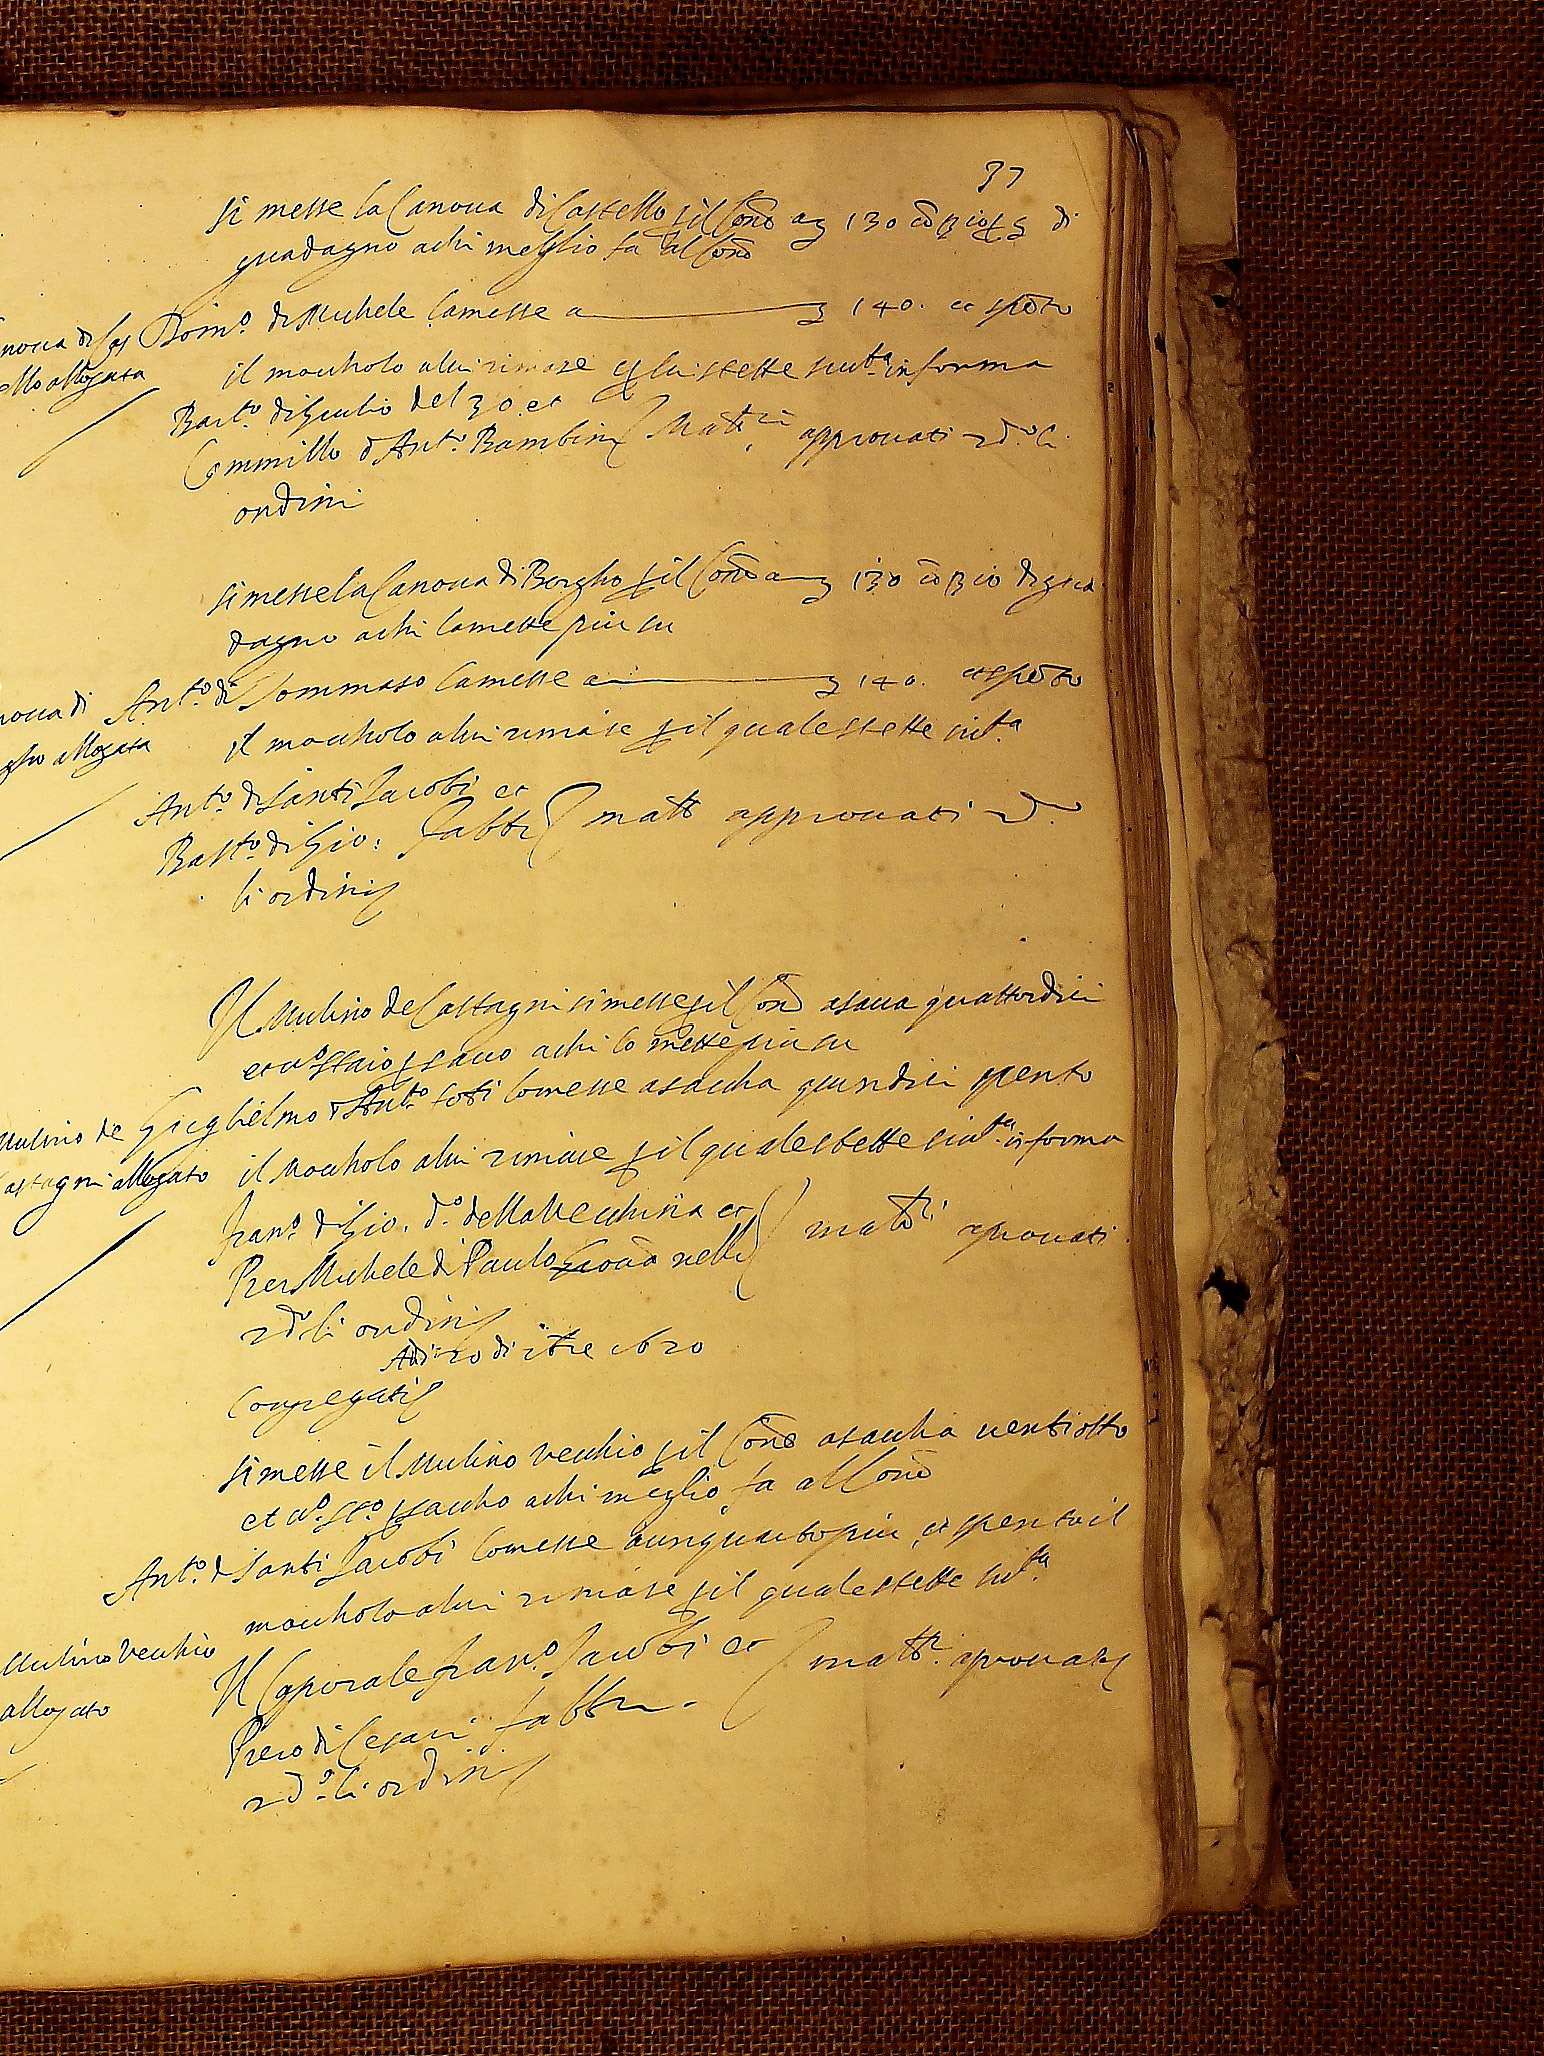 37
si messe la Canova di Castello p il Conõ a 130 cõ di
guadagno a chi meglio fa al Conõ
Canova di Cas
ello allogata
Dom.º di Michele la messe a 140. et spẽto
il moccholo a lui rimase stette sicu.ta in forma
Bart.º di Giulio del 30. et
Cammillo d Ant.º Bambini matt.ri approvati 2d.º li
ordini
si messe la Canova di Borgho p il Conõ a 130 cõ di gua
dagno a chi la messe piu su
nova di
gho allogata
Ant.º di Tommaso la messe a 140. et spẽto
il moccholo a lui rimase p il quale stette sicu.ta
Ant.º di Santi Jacobi et
Bast.º di Gio: fabbri matt approvati 2d.º
li ordini
Il Mulino de Castagni si messe p il Conõ a sacca quattordici
et uº staio p sacco a chi lo messe piu su
Mulino de
Castagni allogato
Guglielmo d Ant.º lo messe a saccha quindici spento
il moccholo a lui rimase p il quale stette sicu.ta in forma
Fran.º di Gio. d.º della Vecchina et
Pier Michele di Paulo nelli matt.ri aprovati
2d.º li ordini
Adi 20 di 1620
Congregati
si messe il Mulino Vecchio p il Conõ a saccha ventiotto
et uº st.º p saccho a chi meglio fa al Conõ
Ant.º d Santi Jacobi lo messe a un quarto piu, et spento il
moccholo a lui rimase p il quale stette sicu.ta
Mulino Vecchio
allogato
Il Caporale Fran.º Jacobi et matt.ri aprovati
Piero di Cesari fabbri
2d.º li ordini